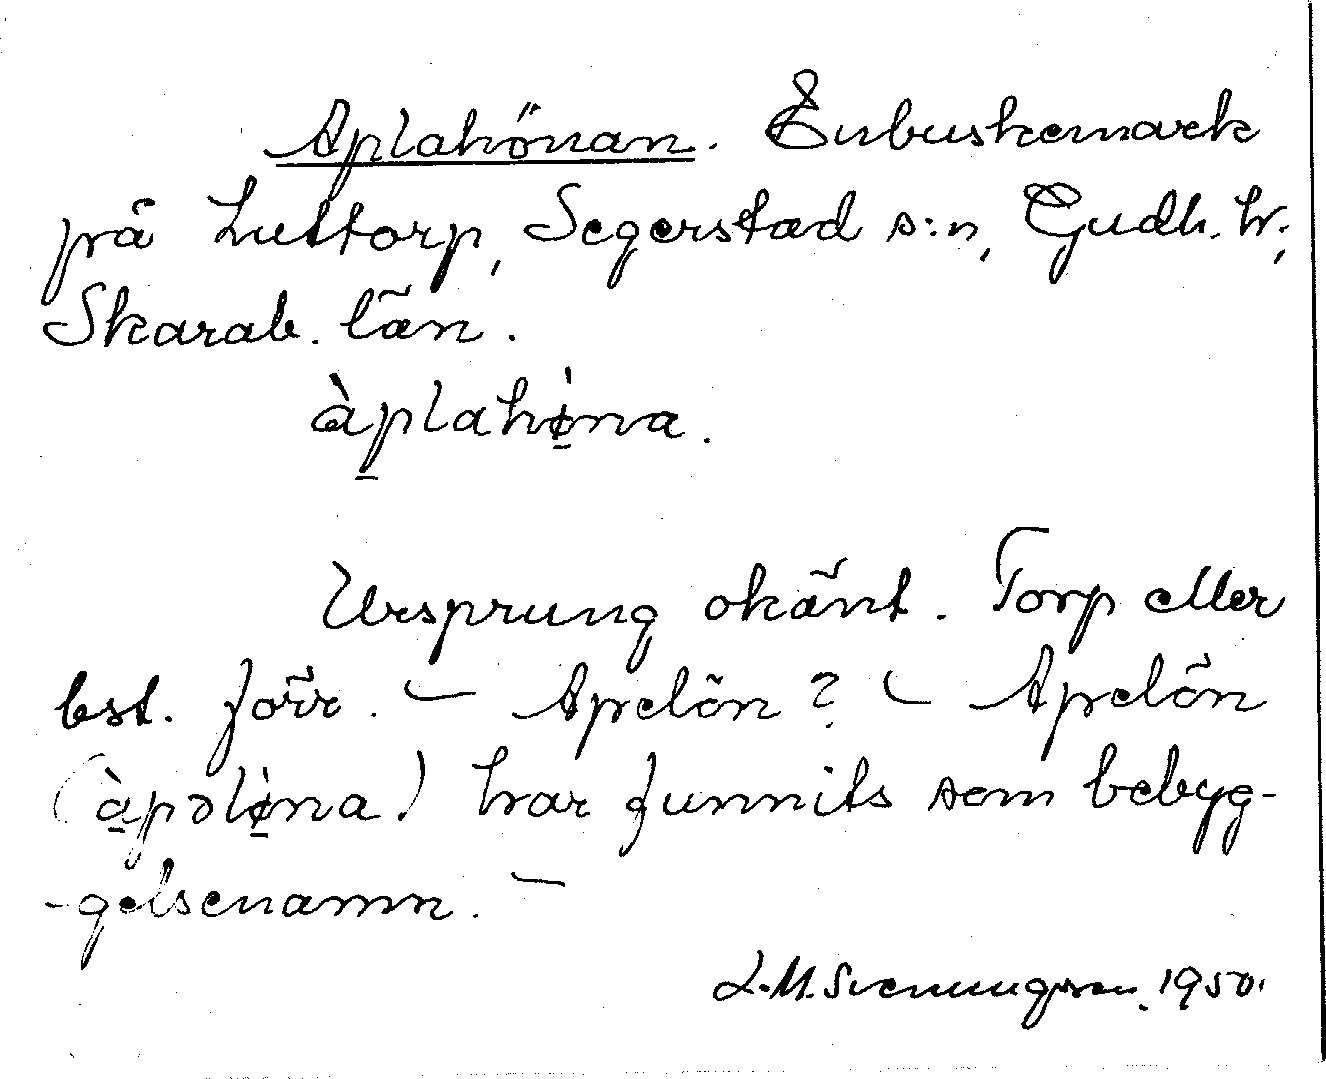 Aplahönan. Enbuskemark
på Luttorp, Segerstad s:n, Gudh. hr;
Skarab. län.
àplahø̀na.
Ursprung okänt. Torp eller
bst. förr. – Apelön? – Apelön
(àpəlø̀na!) har funnits som bebyg-
-gelsenamn. –
L.M. Svenungsson. 1950.